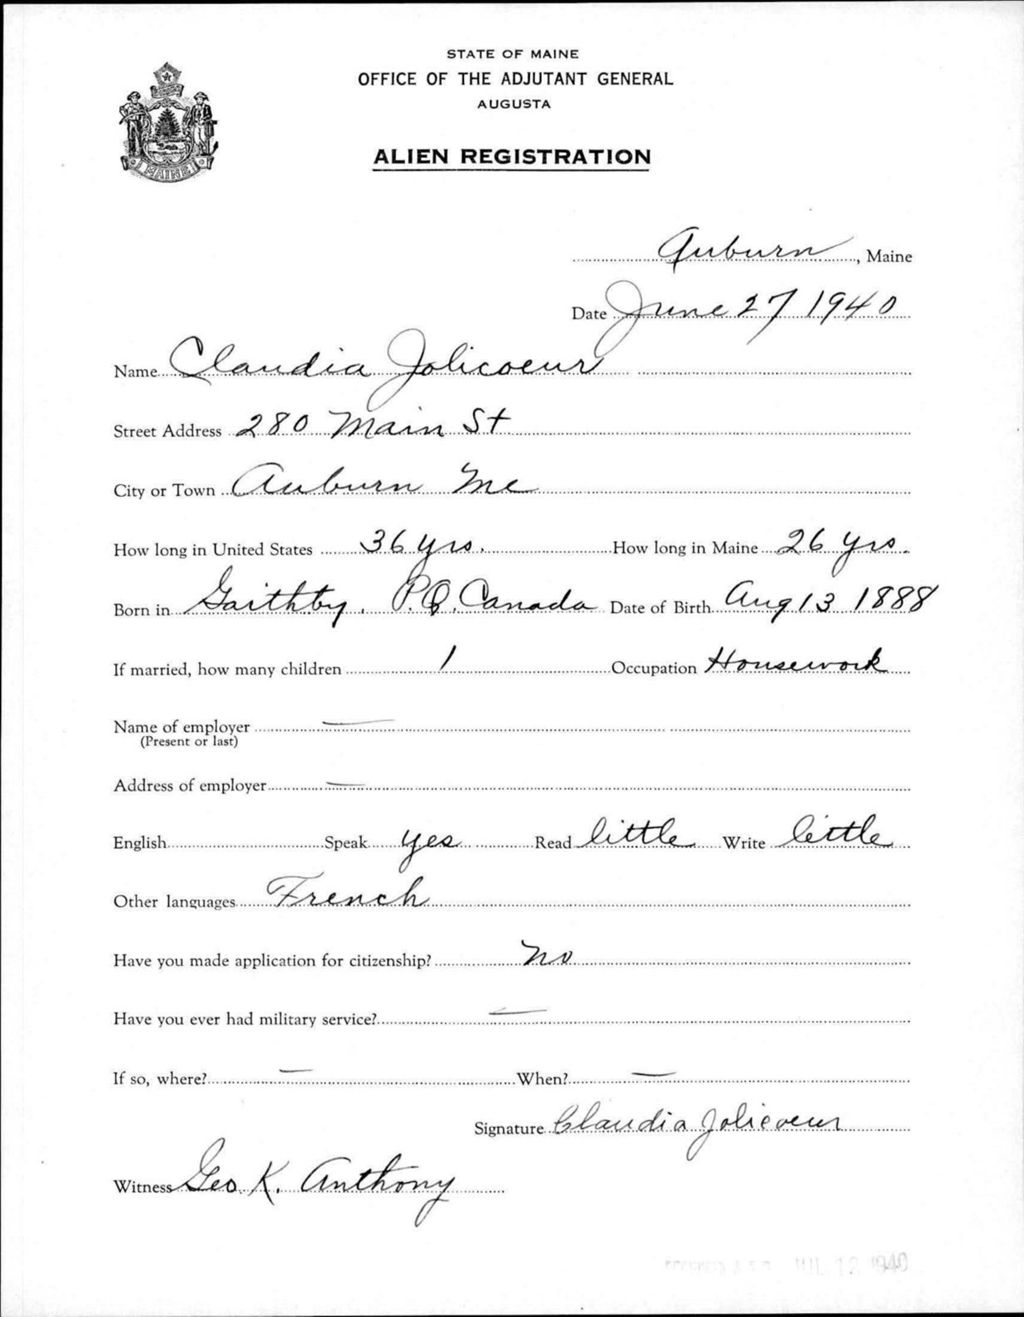 STATE OF MAINE
OFFICE OF THE ADJUTANT GENERAL
AUGUSTA
ALIEN REGISTRATION
MAINE
Auburn, Maine
Date June 27 1940
Name Claudia Jolicoeur
Street Address 280 Main St
City or Town Auburn Me
How long in United States 36 yrs. How long in Maine 26 yrs.
Born in Garthby, P.Q. Canada Date of Birth Aug 13 1888
If married, how many children 1 Occupation Housework
Name of employer —
(Present or last)
Address of employer —
English Speak yes Read little Write little
Other languages French
Have you made application for citizenship? No
Have you ever had military service? —
If so, where? — When? —
Signature Claudia Jolicoeur
Witness Geo. K. Anthony
JUL 12 1940